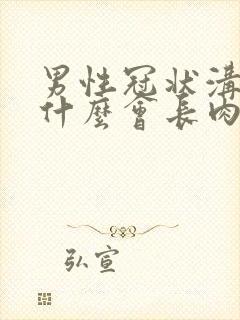 男性冠狀溝
什麼會長肉
弘宣